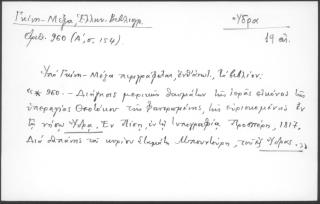 Γκίνη - Μέξα, Ἑλλην. Βιβλιογρ.
Ὕδρα
Ἀριθ. 960 (Α', σ. 154).
19 αἰ.
Ὑπὸ Γκίνη - Μέξα περιγράφεται, τὸ βιβλίον:
«* 960. - Διήγησις μερικῶν θαυμάτων τῆς ἱερᾶς εἰκόνος τῆς
ὑπεραγίας Θεοτόκου τῆς Φανερωμένης, τῆς εὑρισκομένης ἐν
τῇ νήσῳ Ὕδρᾳ. Ἐν Πίσῃ, ἐν τῇ Τυπογραφίᾳ Προσπέρη, 1817.
Διὰ δαπάνης τοῦ κυρίου Σταμάτη Μπουντούρη, τοῦ ἐξ Ὕδρας.»